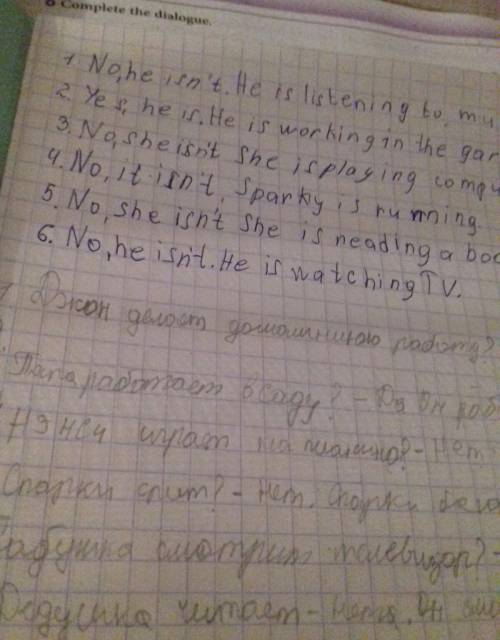 Complete the dialogue.
1 No, he isn't. He is listening to mu
2. Yes, he is. He is working in the gar
3. No, she isn't She is playing compu
4. No, it isn't, Sparky is running.
5. No, she isn't She is reading a boo
6. No, he isn't. He is watching TV.
Джон делает домашнюю работу?
Папа работает в саду? - Да Он раб
Нэнси играет на пианино? - Нет
Спарки спит? - Нет. Спарки бега
Бабушка смотрит телевизор? -
Дедушка читает - Нет. Он смо